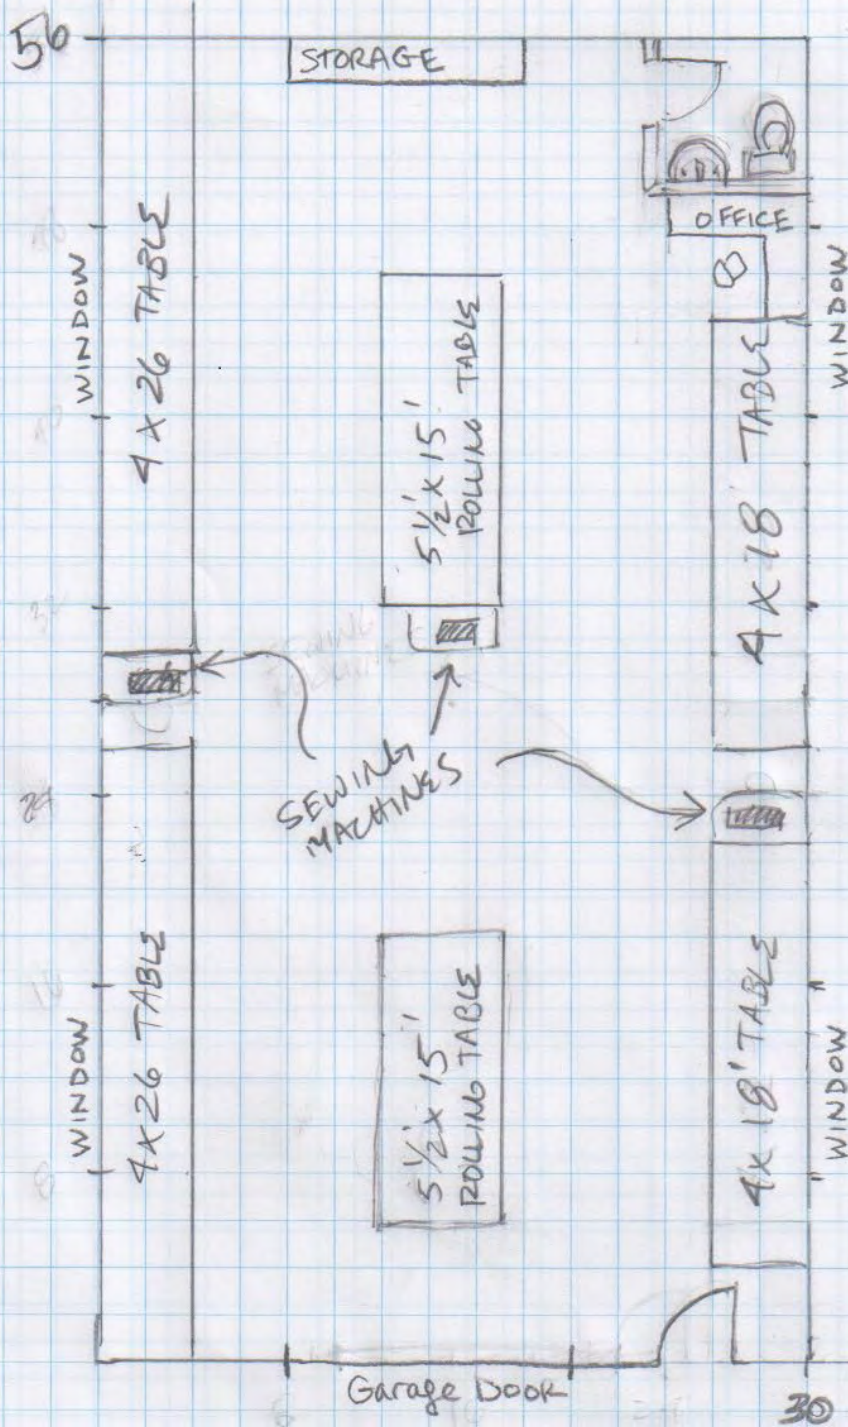 50
STORAGE
OFFICE
WINDOW
4 X 26 TABLE
5 1/2' X 15'
ROLLING TABLE
4 X 18' TABLE
WINDOW
SEWING
MACHINES
24
WINDOW
4 X 26 TABLE
5 1/2' X 15'
ROLLING TABLE
4 X 18' TABLE
WINDOW
8
Garage Door
30